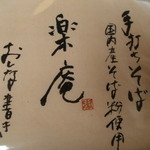 手打ちそば
国内産そば粉使用
楽庵
おしながき